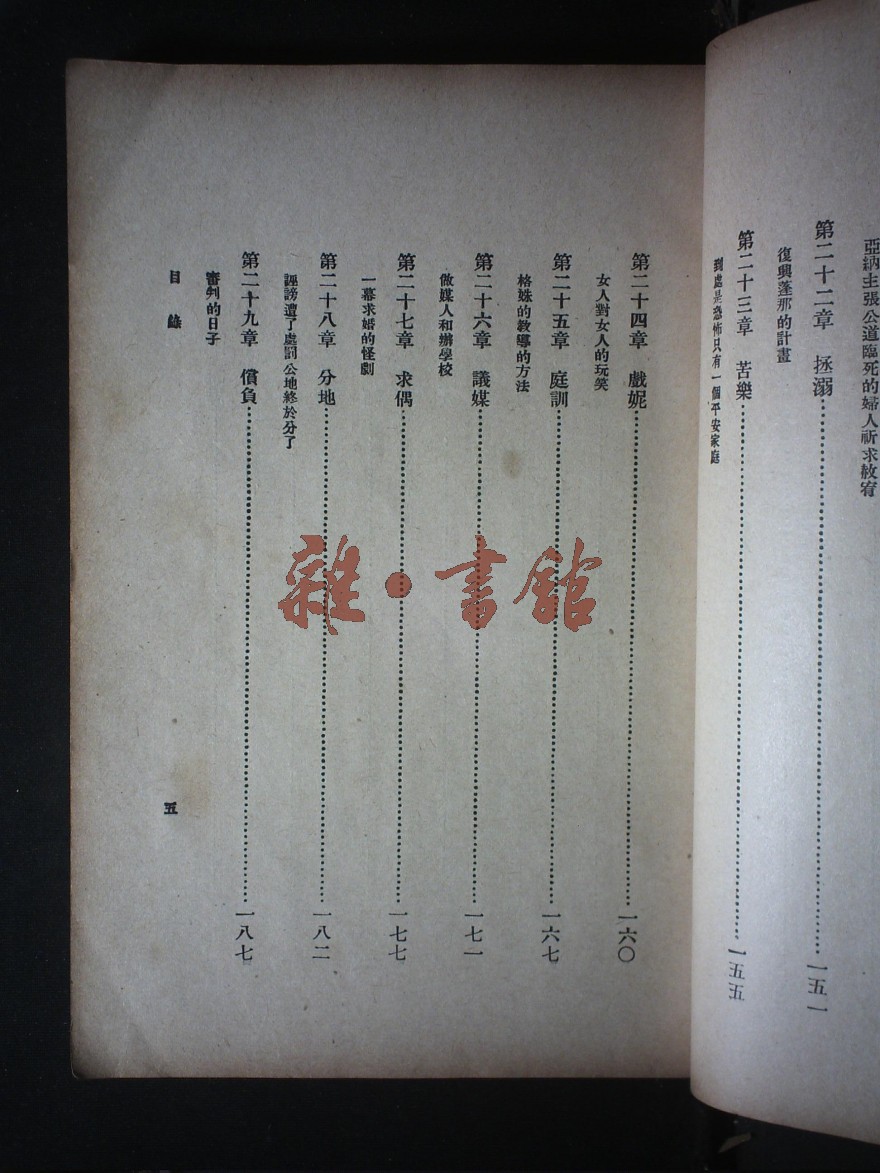 亞納主張公道臨死的婦人祈求赦宥
第二十二章 拯溺……一五一
復興蓬那的計畫
第二十三章 苦樂……一五五
到處是恐怖只有一個平安家庭
第二十四章 戲妮……一六〇
女人對女人的玩笑
第二十五章 庭訓……一六七
格姝的教導的方法
第二十六章 議媒……一七一
做媒人和辦學校
第二十七章 求偶……一七七
一幕求婚的怪劇
第二十八章 分地……一八二
誣謗遭了處罰公地終於分了
第二十九章 償負……一八七
審判的日子
目錄
五
雜·書館